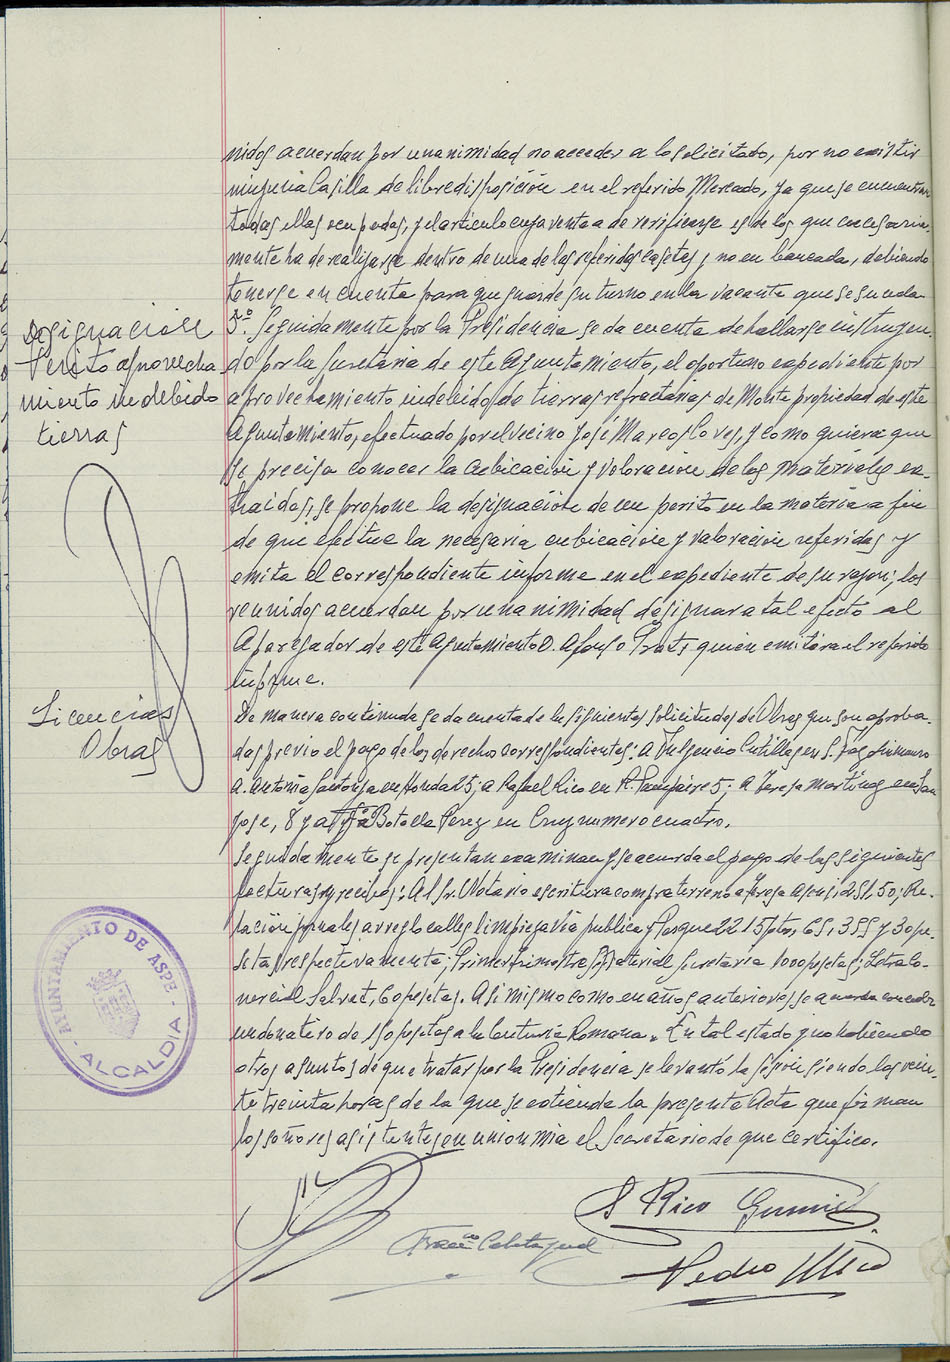 nidos acuerdan por unanimidad no acceder a lo solicitado, por no existir
ninguna Casilla de libre disposición en el referido Mercado, ya que se encuentran
todas ellas ocupadas, y el artículo cuya venta a de verificarse es de los que necesaria-
mente ha de realizarse dentro de una de las referidas casetas y no en bancada, debiendo
tenerse en cuenta para que guarde su turno en la vacante que se suceda
Designación
Perito aprovecha
miento indebido
tierras
3º. Seguidamente por la Presidencia se da cuenta de hallarse instruyen-
do por la Secretaria de este Ayuntamiento, el oportuno expediente por
aprovechamiento indebido de tierras refractarias de Monte propiedad de este
Ayuntamiento, efectuado por el vecino José Marcos y como quiera que
se precisa conocer la cubicación y valoración de los materiales ex-
traidos, se propone la designación de un perito en la materia a fin
de que efectue la necesaria cubicación y valoración referidas y
emita el correspondiente informe en el expediente de su razon; los
reunidos acuerdan por unanimidad designar a tal efecto al
Aparejador de este Ayuntamiento D. Alfonso Prats, quien emitira el referido
informe.
Licencias
Obras
De manera continuada se da cuenta de las siguientes solicitudes de Obras que son aproba-
das previo el pago de los derechos correspondientes: a Fulgencio Cutillas en S.
a Antonia en Honda 25; a Rafael Rico en 5; a Teresa Martínez en San
Jose, 8 y a Botella Perez en Cruz numero cuatro.
Seguidamente se presentan examinan y se acuerda el pago de las siguientes
facturas y recibos: Al Sr. Notario escritura compra terreno a 251.50; Re-
lación jornales arreglo calles limpieza via publica y Parque 2215 ptas, 65, 355 y 30 pe-
setas respectivamente; Primer trimestre Material Secretaria 1000 pesetas; Letra Co-
mercial Salvat, 60 pesetas. Asi mismo como en años anteriores se acuerda conceder
un donativo de 150 pesetas a la Centuria Romana. En tal estado y no habiendo
otros asuntos de que tratar por la Presidencia se levantó la sesión siendo las vein-
te treinta horas de la que se extiende la presente Acta que firman
los señores asistentes en union mia el Secretario de que certifico.
AYUNTAMIENTO DE ASPE
- ALCALDIA -
S Rico
Franco Calatayud
Pedro